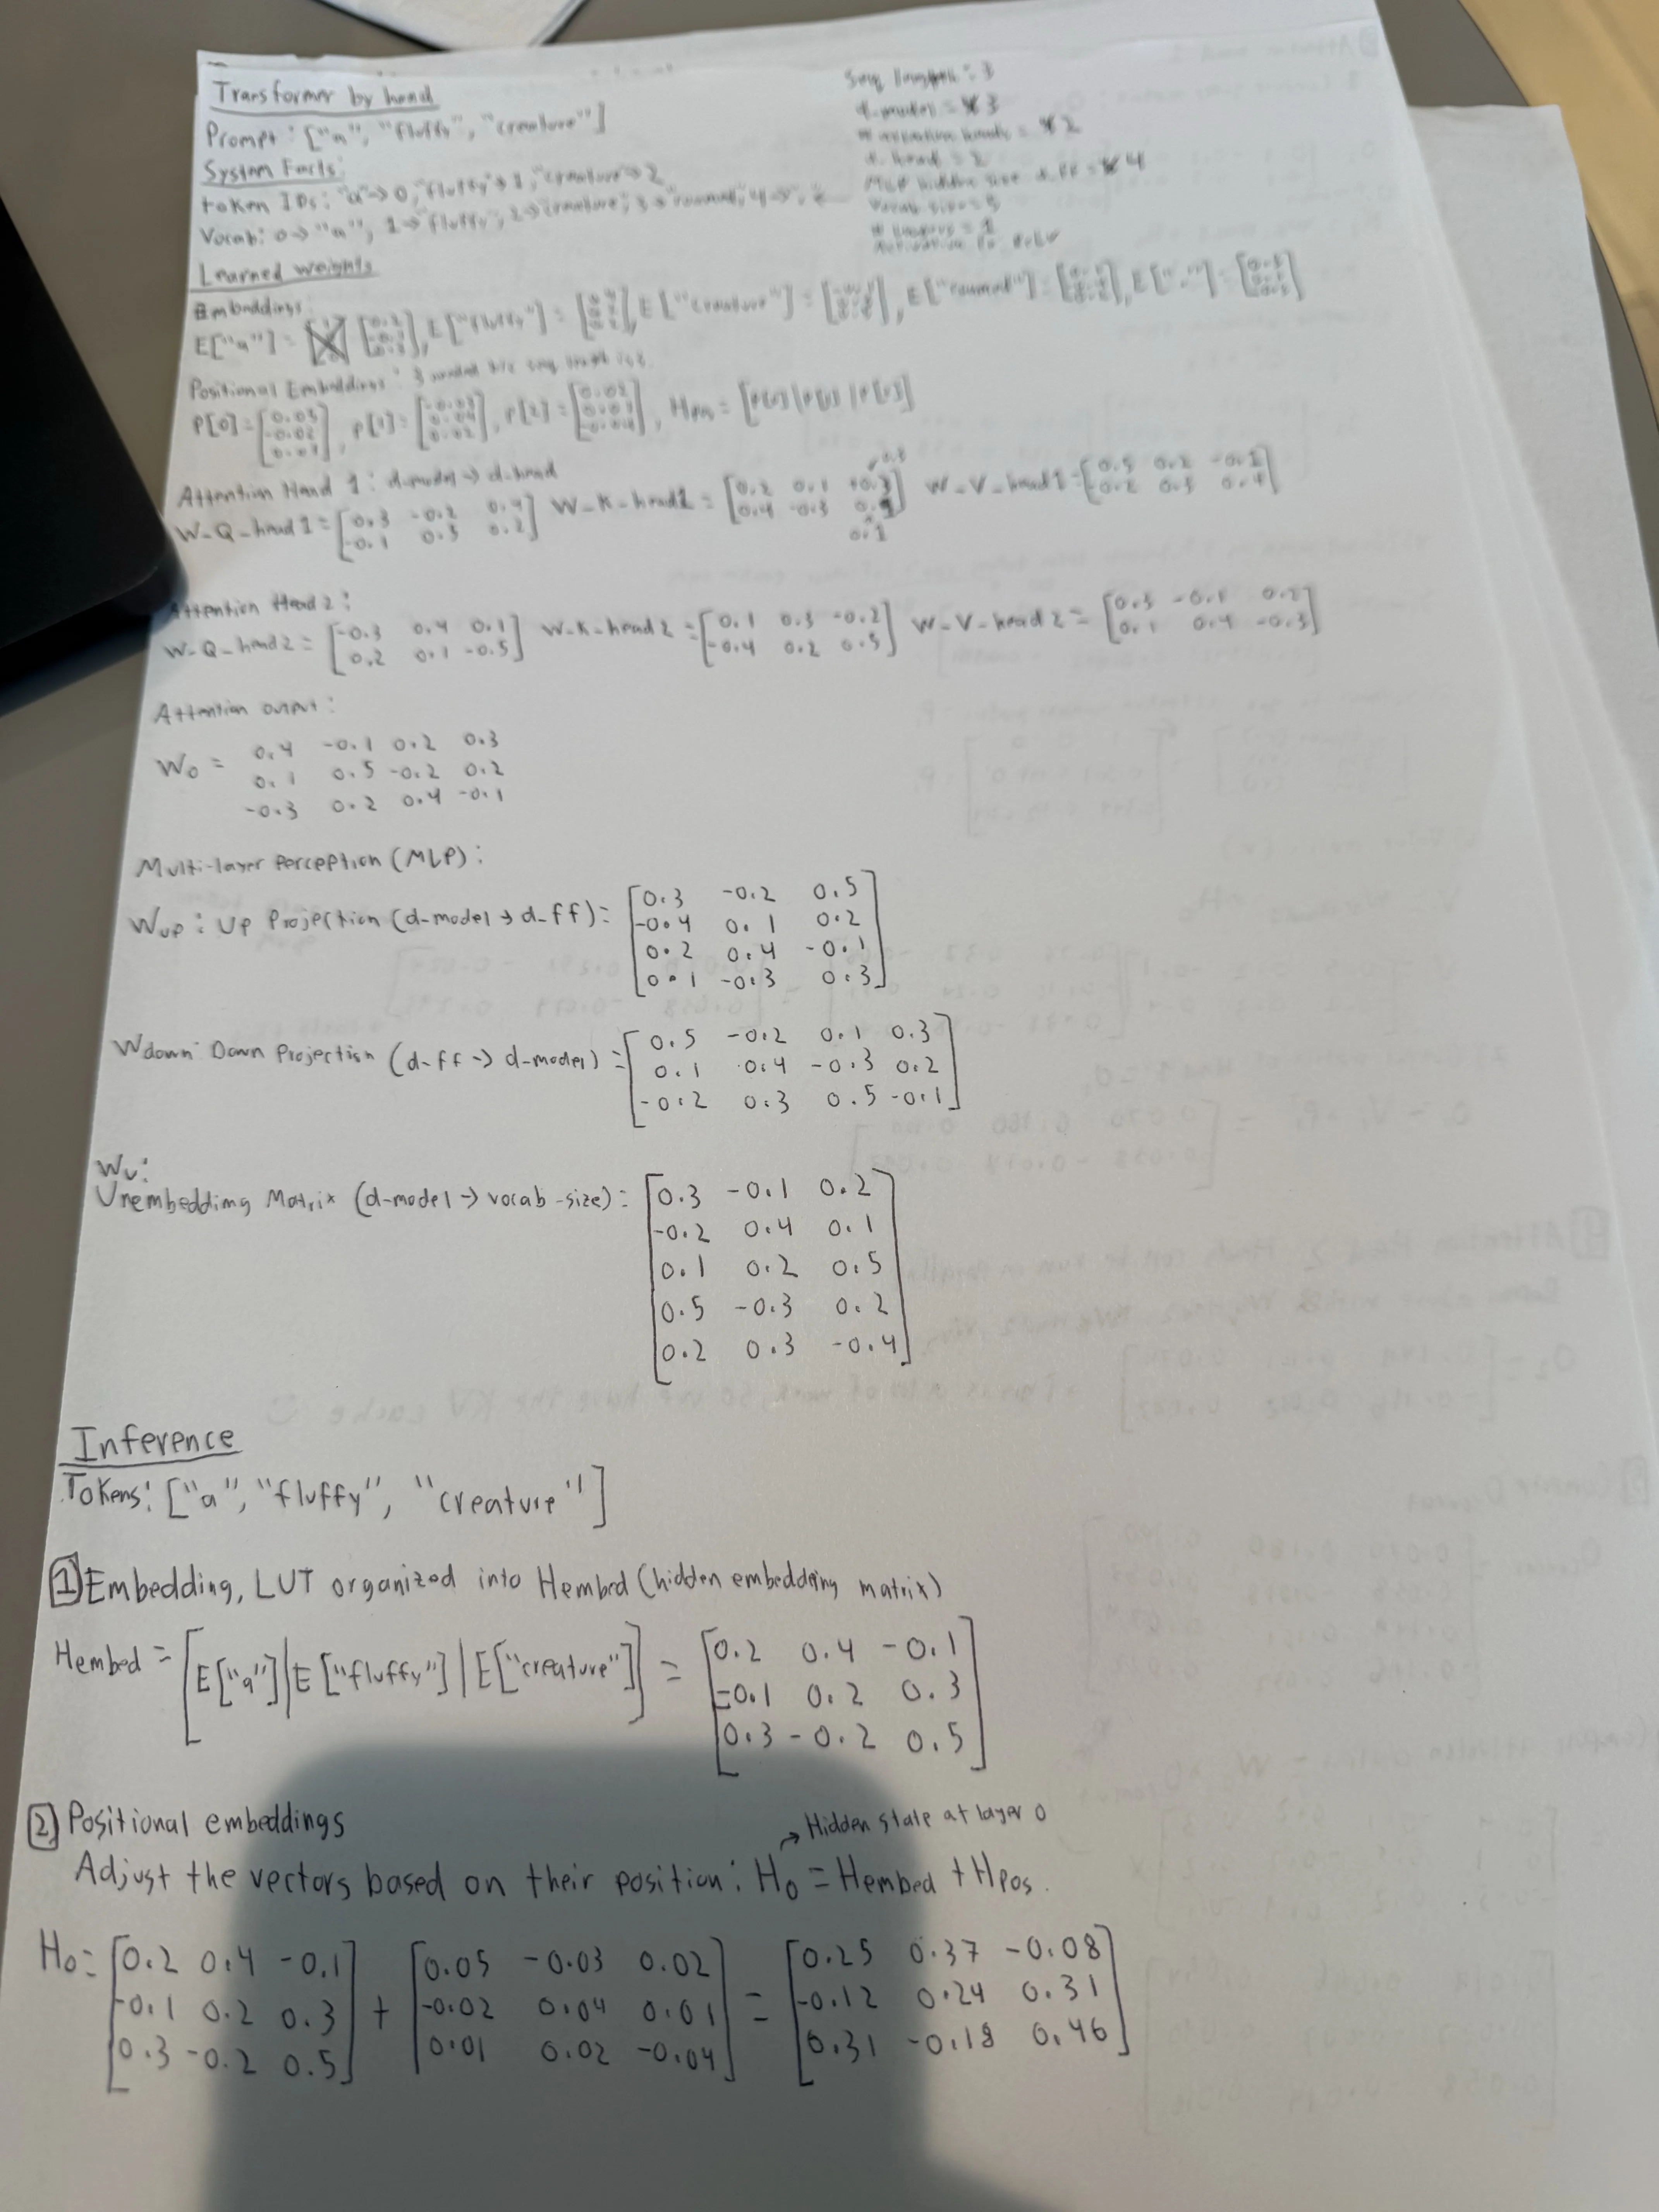 Transformer by hand
Prompt: ["a", "fluffy", "creature"]
System Facts:
token IDs: "a"→0, "fluffy"→1, "creature"→2
Vocab: 0→"a", 1→"fluffy", 2→"creature", 3→
Seq length: 3
d-model = 3
# attention heads = 2
d-head = 2
MLP hidden size d-ff = 4
vocab size = 5
# layers = 1
Learned weights
Embeddings:
E["a"] = , E["fluffy"] = , E["creature"] = , E[ ] = , E["."] =
Positional Embeddings: 3 needed b/c seq length is 3.
P[0] = [0.05 -0.02 0.01], P[1] = [-0.03 0.04 0.02], P[2] = [0.02 0.01 -0.04], Hpos =
Attention Head 1: d-model → d-head
W-Q-head1 = [0.3 -0.2 0.4
-0.1 0.5 0.2]
W-K-head1 = [0.2 0.1
0.4 -0.3 0.1]
W-V-head1 = [0.5 0.2 -0.1
0.2 0.3 0.4]
Attention Head 2:
W-Q-head2 = [-0.3 0.4 0.1
0.2 0.1 -0.5]
W-K-head2 = [0.1 0.3 -0.2
-0.4 0.2 0.5]
W-V-head2 = [0.5 -0.1 0.2
0.1 0.4 -0.3]
Attention output:
Wo = 0.4 -0.1 0.2 0.3
0.1 0.5 -0.2 0.2
-0.3 0.2 0.4 -0.1
Multi-layer Perception (MLP):
Wup: Up Projection (d-model → d-ff) = [0.3 -0.2 0.5
-0.4 0.1 0.2
0.2 0.4 -0.1
0.1 -0.3 0.3]
Wdown: Down Projection (d-ff → d-model) = [0.5 -0.2 0.1 0.3
0.1 0.4 -0.3 0.2
-0.2 0.3 0.5 -0.1]
Wu:
Unembedding Matrix (d-model → vocab-size) = [0.3 -0.1 0.2
-0.2 0.4 0.1
0.1 0.2 0.5
0.5 -0.3 0.2
0.2 0.3 -0.4]
Inference
Tokens: ["a", "fluffy", "creature"]
1 Embedding, LUT organized into Hembed (hidden embedding matrix)
Hembed = [E["a"]|E["fluffy"]|E["creature"]] = [0.2 0.4 -0.1
-0.1 0.2 0.3
0.3 -0.2 0.5]
2 Positional embeddings
→ Hidden state at layer 0
Adjust the vectors based on their position: H0 = Hembed + Hpos.
H0 = [0.2 0.4 -0.1 + [0.05 -0.03 0.02 = [0.25 0.37 -0.08
-0.1 0.2 0.3 -0.02 0.04 0.01 -0.12 0.24 0.31
0.3 -0.2 0.5] 0.01 0.02 -0.04] 0.31 -0.18 0.46]